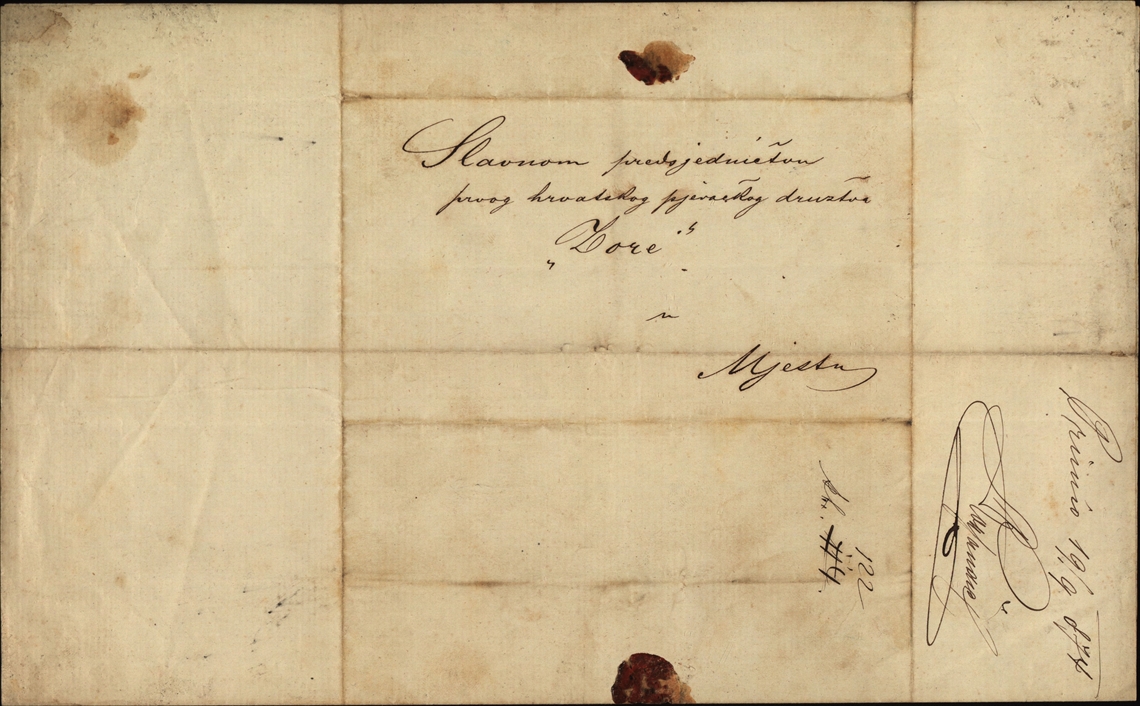 Slavnom predsjedničtvu
prvog hrvatskog pjevačkog družtva
„Zore“
u
Mjestu
Primio 19/9 874
122